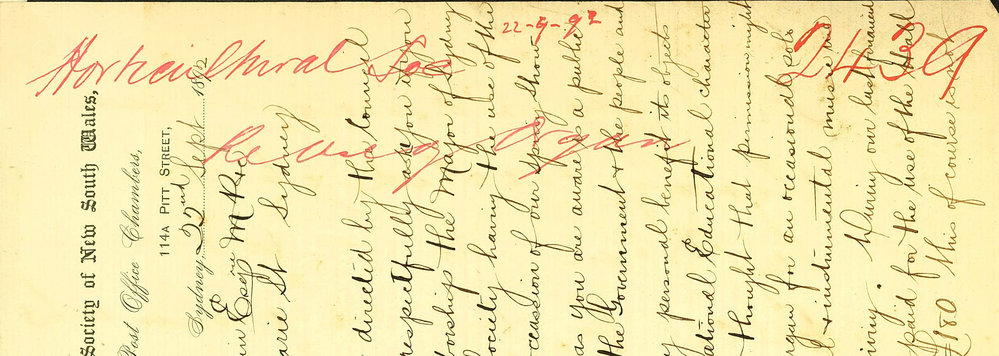 Horticultural Soc
22-9-92
2439
re using Organ
Society of New South Wales,
Post Office Chambers,
114A PITT STREET,
Sydney, 22nd Sept 1892
Esqre M P
arie St Sydney
directed by the Council
respectfully ask you if you
orship the Mayor of Sydney
ociety having the use of the
occassion of our spring show
as you are aware is a public
the Government & the people and
y personal benefit its objects
ational & Educational character
thought that permission might
gan for an occasional solo
l & instrumental music
iving. During our last
paid for the use of the Hall
£180 This of course is not